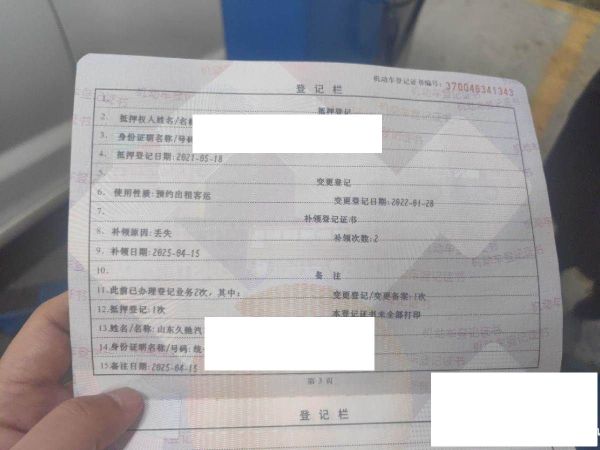 机动车登记证书编号: 370046341343
登记栏
1. 抵押登记
2. 抵押权人姓名/名称
3. 身份证明名称/号码
4. 抵押登记日期:2021-05-18
5. 变更登记
6. 使用性质:预约出租客运 变更登记日期:2022-01-28
7. 补领登记证书
8. 补领原因:丢失 补领次数:2
9. 补领日期:2025-04-15
10. 备注
11.此前已办理登记业务2次,其中: 变更登记/变更备案:1次
12.抵押登记:1次 本登记证书未全部打印
13.姓名/名称:山东久驰汽
14.身份证明名称/号码:统一
15.备注日期:2025-04-15
第 3 页
登记栏